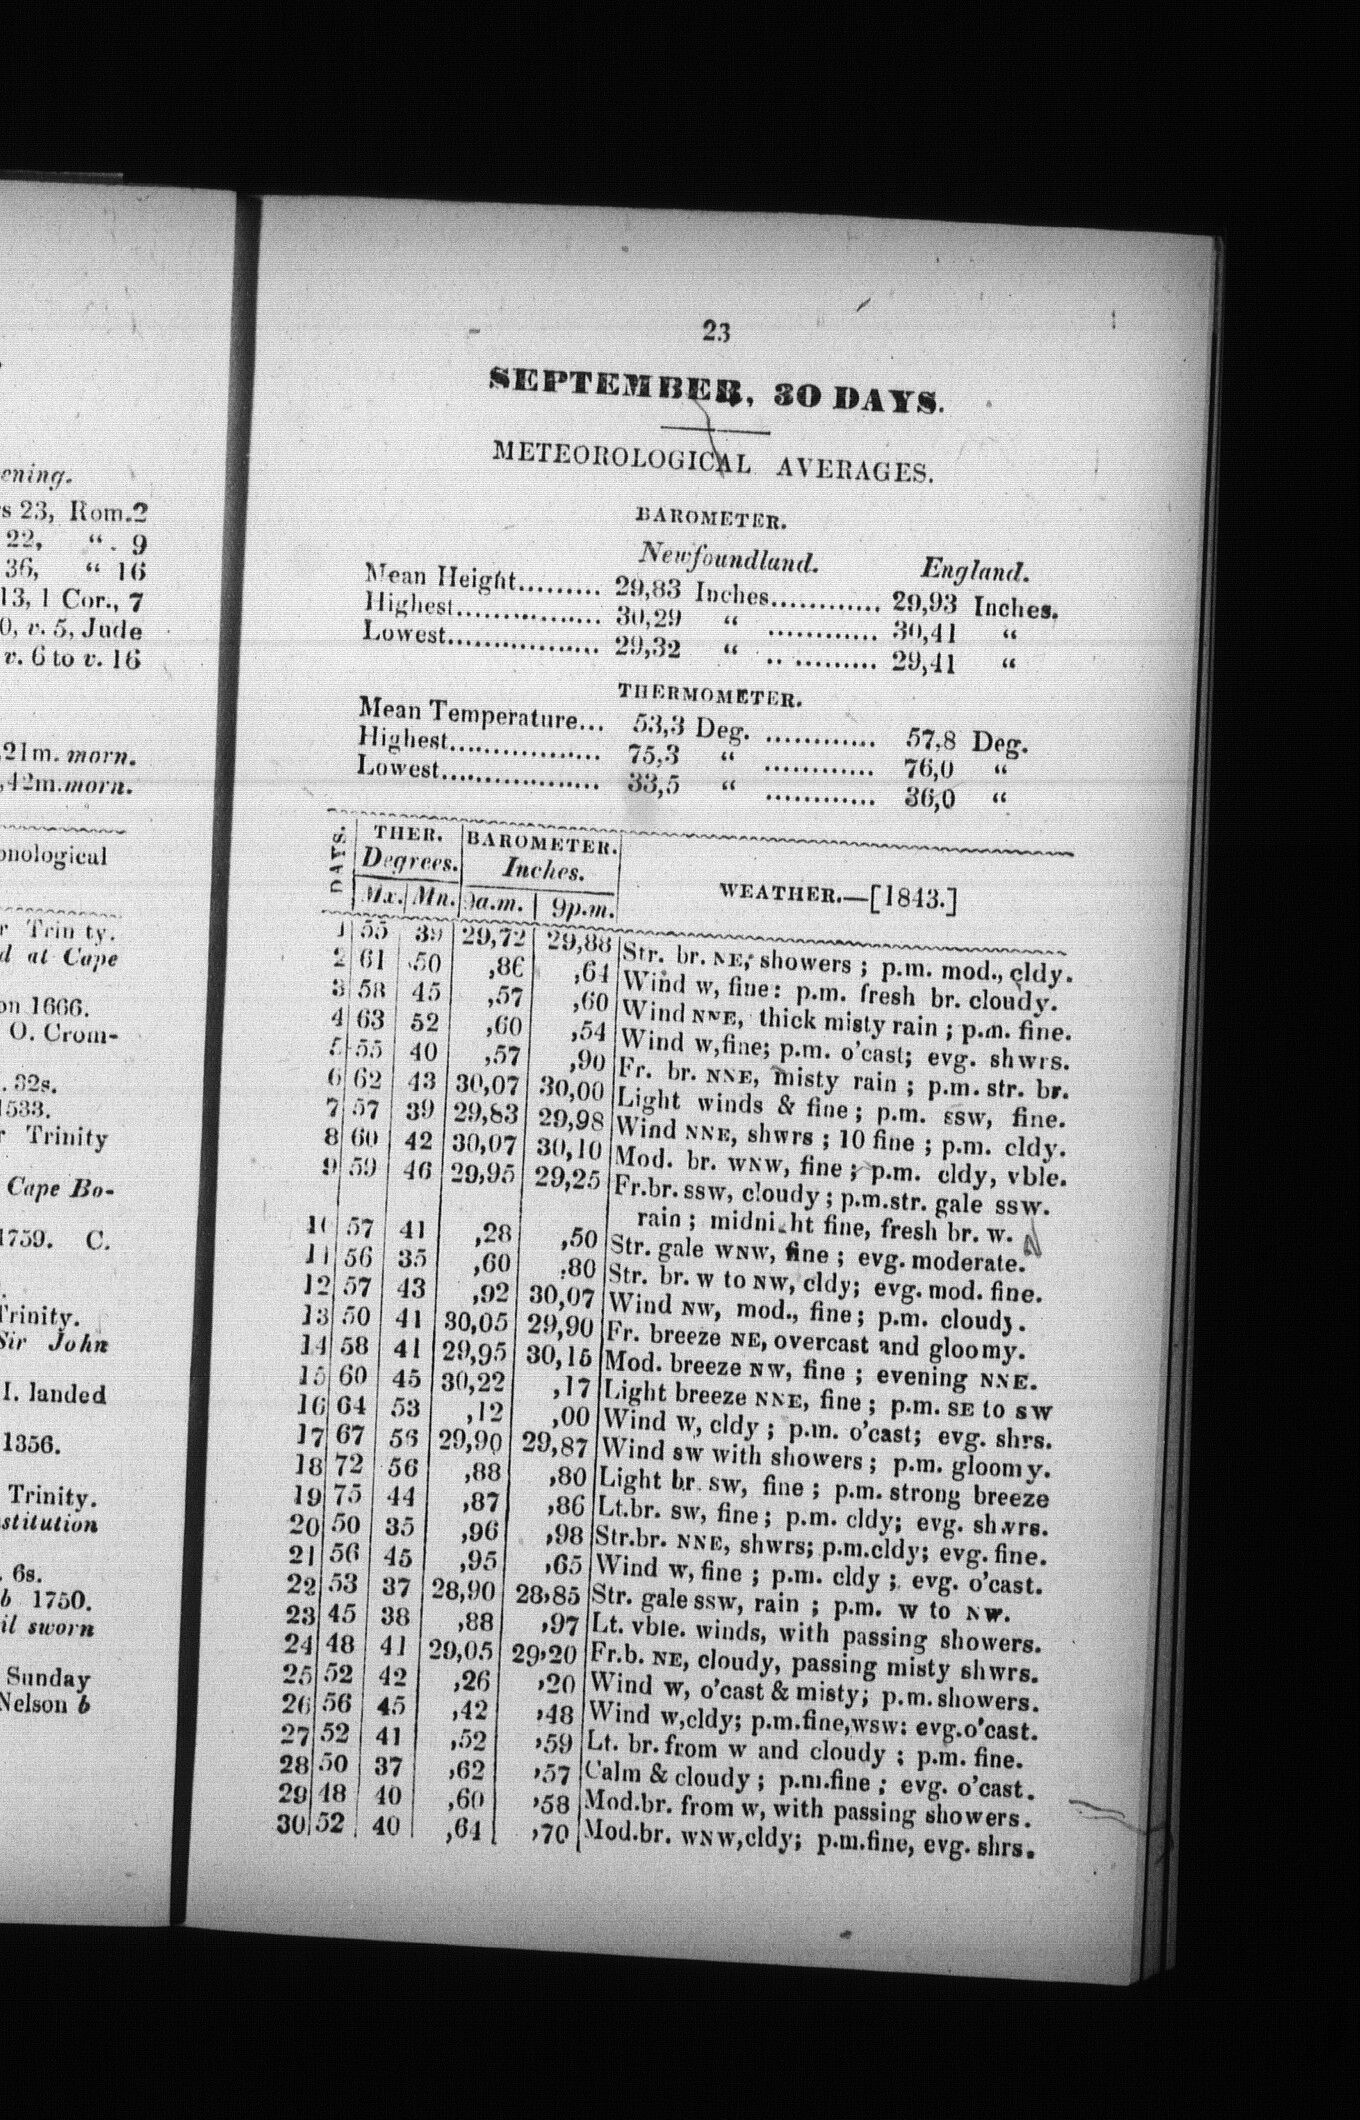 ening.
s 23, Rom.2
22, “ . 9
36, “ 16
13, 1 Cor., 7
0, v. 5, Jude
v. 6 to v. 16
,21m. morn.
,42m. morn.
onological
r Trin ty.
d at Cape
on 1666.
O. Crom-
. 32s.
1533.
r Trinity
Cape Bo-
1759. C.
Trinity.
Sir John
I. landed
1356.
Trinity.
stitution
. 6s.
b 1750.
il sworn
Sunday
Nelson b
23
SEPTEMBER, 30 DAYS.
METEOROLOGICAL AVERAGES.
BAROMETER.
Newfoundland. England.
Mean Height......... 29,83 Inches............ 29,93 Inches.
Highest................ 30,29 “ ............ 30,41 “
Lowest................. 29,32 “ .. ......... 29,41 “
THERMOMETER.
Mean Temperature... 53,3 Deg. ............ 57,8 Deg.
Highest................. 75,3 “ ............ 76,0 “
Lowest.................. 33,5 “ ............ 36,0 “
DAYS. THER. BAROMETER.
Degrees. Inches. WEATHER.—[1843.]
Mx. Mn. 9a.m. 9p.m.
1 55 39 29,72 29,88 Str. br. NE, showers ; p.m. mod., cldy.
2 61 50 ,86 ,64 Wind w, fine: p.m. fresh br. cloudy.
3 58 45 ,57 ,60 Wind NNE, thick misty rain ; p.m. fine.
4 63 52 ,60 ,54 Wind w,fine; p.m. o’cast; evg. shwrs.
5 55 40 ,57 ,90 Fr. br. NNE, misty rain ; p.m. str. br.
6 62 43 30,07 30,00 Light winds & fine ; p.m. ssw, fine.
7 57 39 29,83 29,98 Wind NNE, shwrs ; 10 fine ; p.m. cldy.
8 60 42 30,07 30,10 Mod. br. WNW, fine ; p.m. cldy, vble.
9 59 46 29,95 29,25 Fr.br. ssw, cloudy ; p.m.str. gale ssw.
rain ; midnight fine, fresh br. w.
10 57 41 ,28 ,50 Str. gale WNW, fine ; evg. moderate.
11 56 35 ,60 ,80 Str. br. w to NW, cldy; evg. mod. fine.
12 57 43 ,92 30,07 Wind NW, mod., fine; p.m. cloudy.
13 50 41 30,05 29,90 Fr. breeze NE, overcast and gloomy.
14 58 41 29,95 30,15 Mod. breeze NW, fine ; evening NNE.
15 60 45 30,22 ,17 Light breeze NNE, fine ; p.m. SE to SW
16 64 53 ,12 ,00 Wind W, cldy ; p.m. o’cast; evg. shrs.
17 67 56 29,90 29,87 Wind sw with showers ; p.m. gloomy.
18 72 56 ,88 ,80 Light br. sw, fine ; p.m. strong breeze
19 75 44 ,87 ,86 Lt.br. sw, fine; p.m. cldy; evg. shwrs.
20 50 35 ,96 ,98 Str.br. NNE, shwrs; p.m.cldy; evg. fine.
21 56 45 ,95 ,65 Wind w, fine ; p.m. cldy ; evg. o’cast.
22 53 37 28,90 28,85 Str. gale ssw, rain ; p.m. w to NW.
23 45 38 ,88 ,97 Lt. vble. winds, with passing showers.
24 48 41 29,05 29,20 Fr.b. NE, cloudy, passing misty shwrs.
25 52 42 ,26 ,20 Wind w, o’cast & misty; p.m. showers.
26 56 45 ,42 ,48 Wind w,cldy; p.m.fine,wsw: evg.o’cast.
27 52 41 ,52 ,59 Lt. br. from w and cloudy ; p.m. fine.
28 50 37 ,62 ,57 Calm & cloudy ; p.m.fine ; evg. o’cast.
29 48 40 ,60 ,58 Mod.br. from w, with passing showers.
30 52 40 ,64 ,70 Mod.br. WNW,cldy; p.m.fine, evg. shrs.